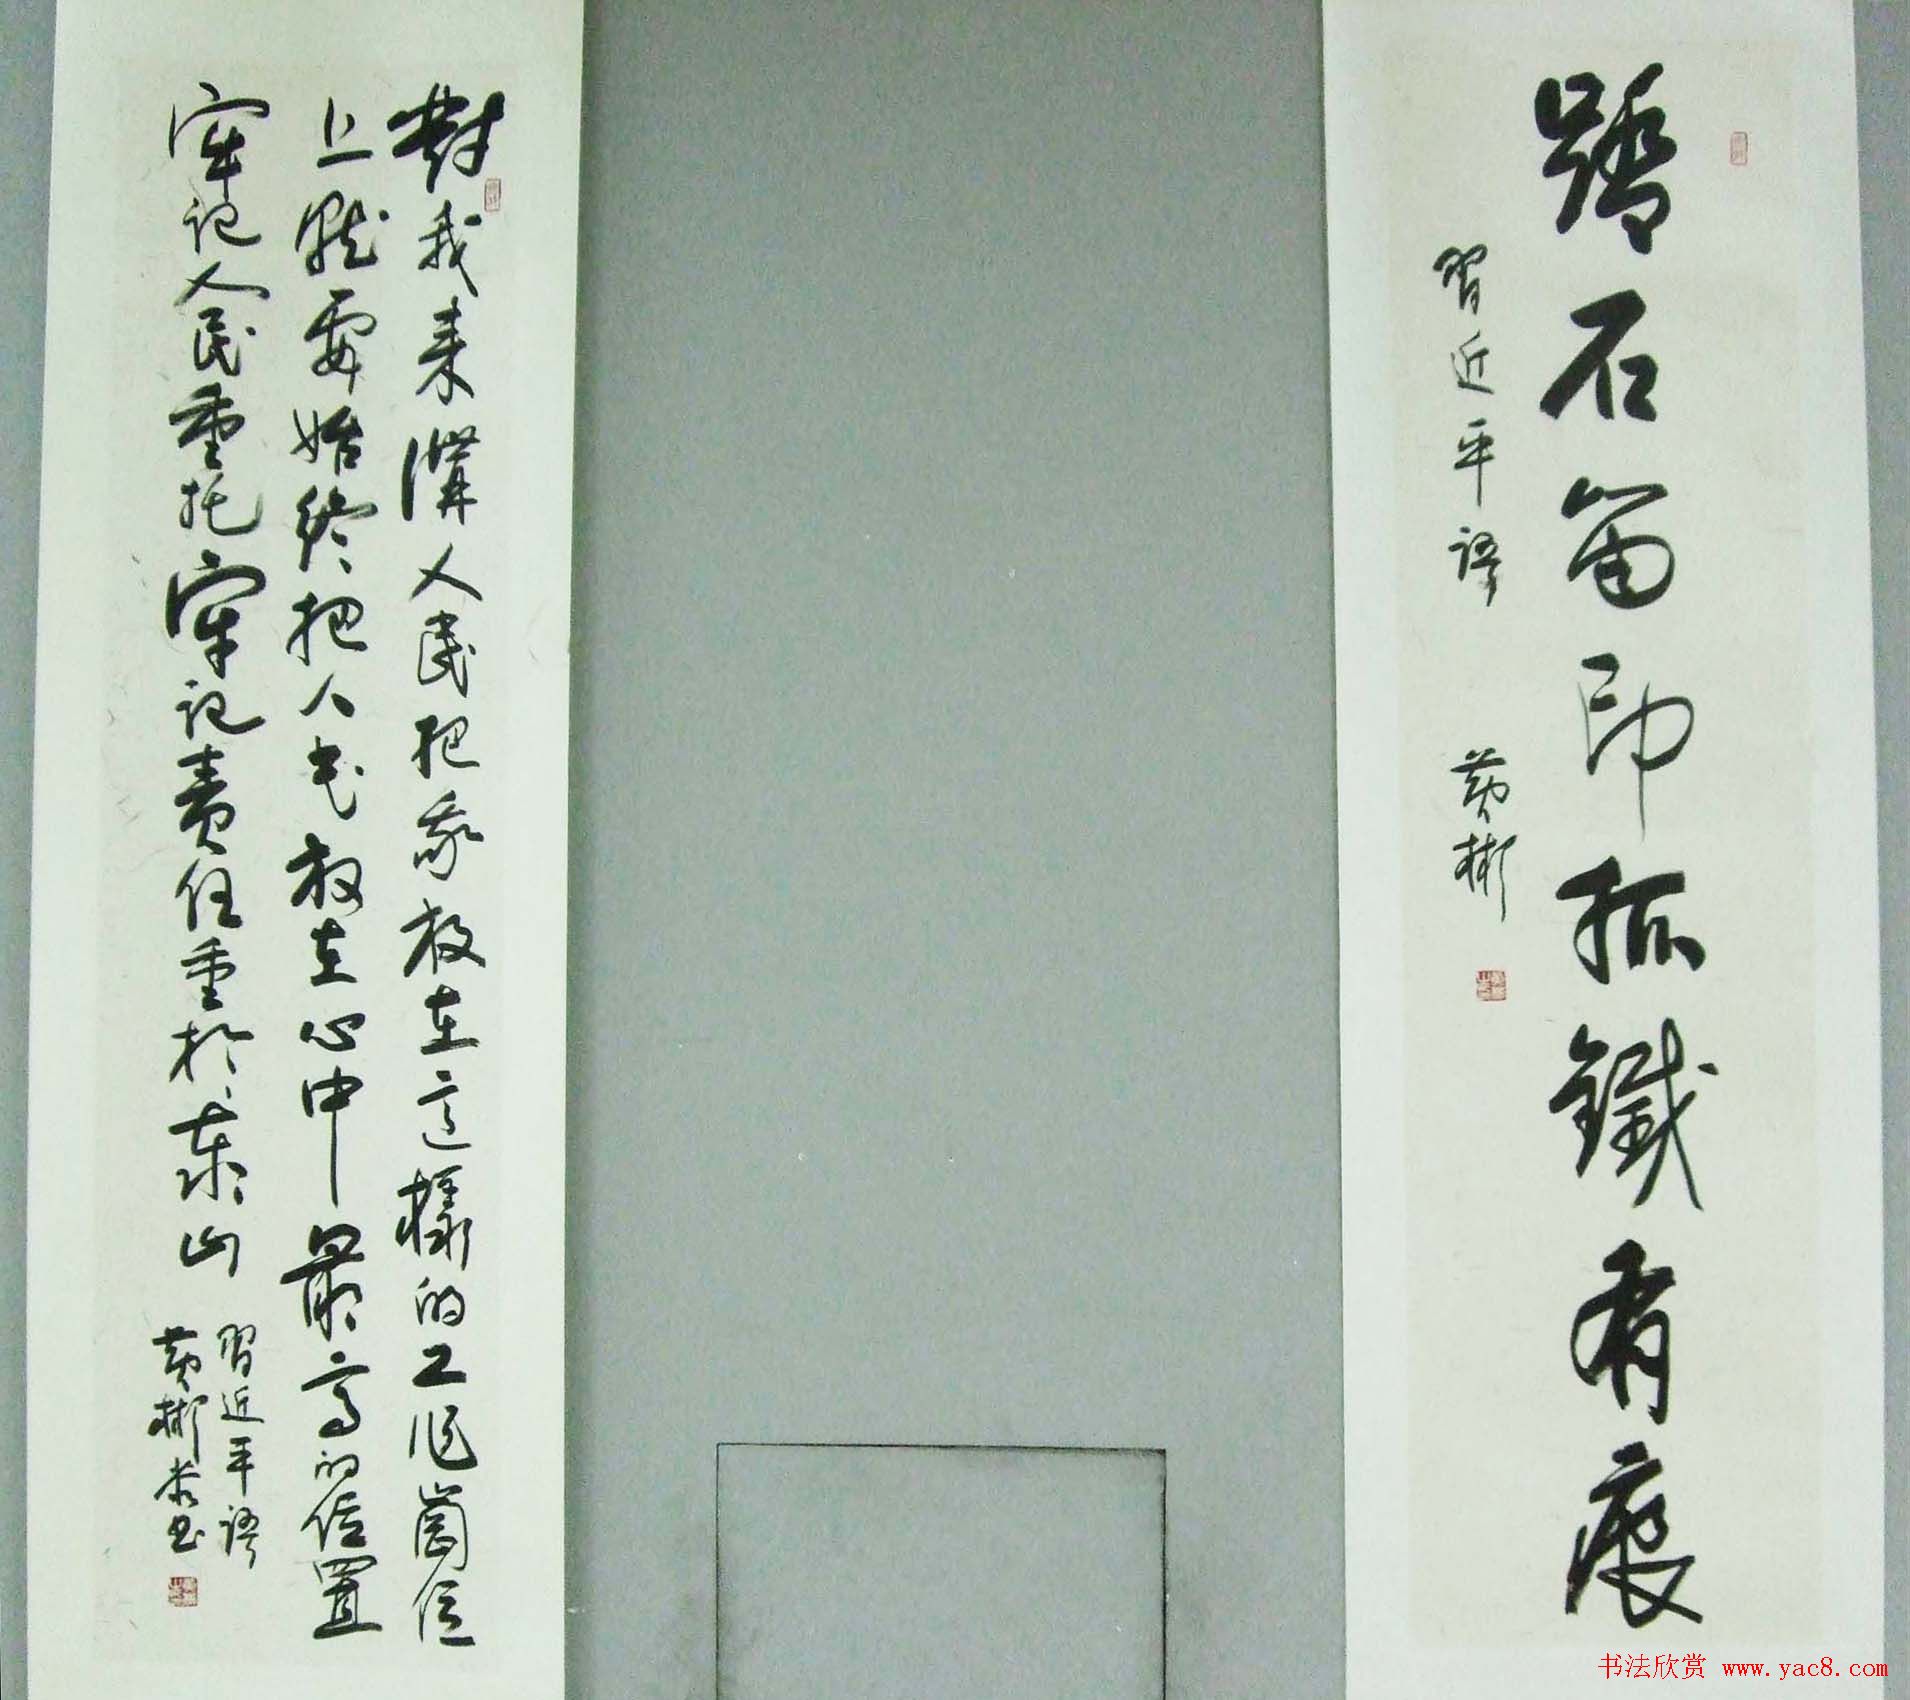 踏石留印抓鐵有痕
習近平語 黄彬
對我来講人民把我放在這樣的工作崗位
上就要始終把人民放在心中最高的位置
牢記人民重托牢記責任重於泰山
習近平語
黄彬书
书法欣赏 www.yac8.com